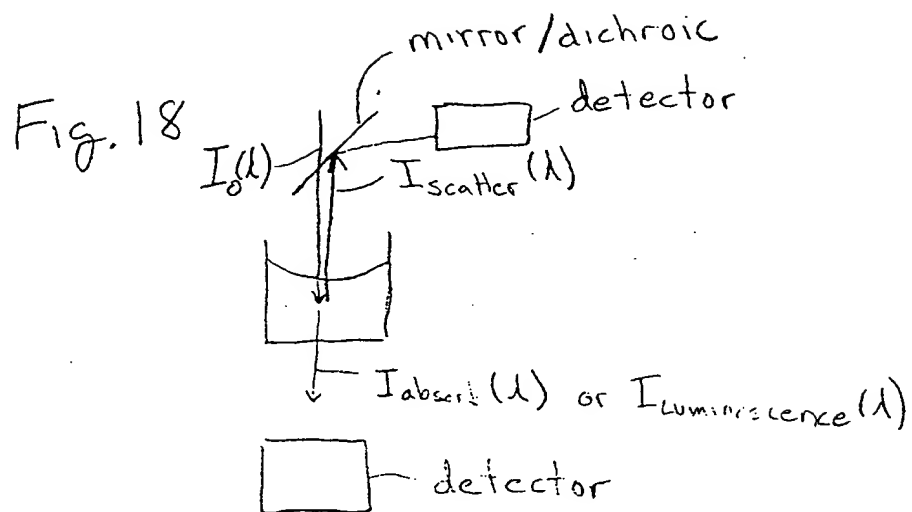 mirror/dichroic
detector
Fig. 18
I₀(λ)
I scatter (λ)
I absorb (λ) or I Luminiscence (λ)
detector